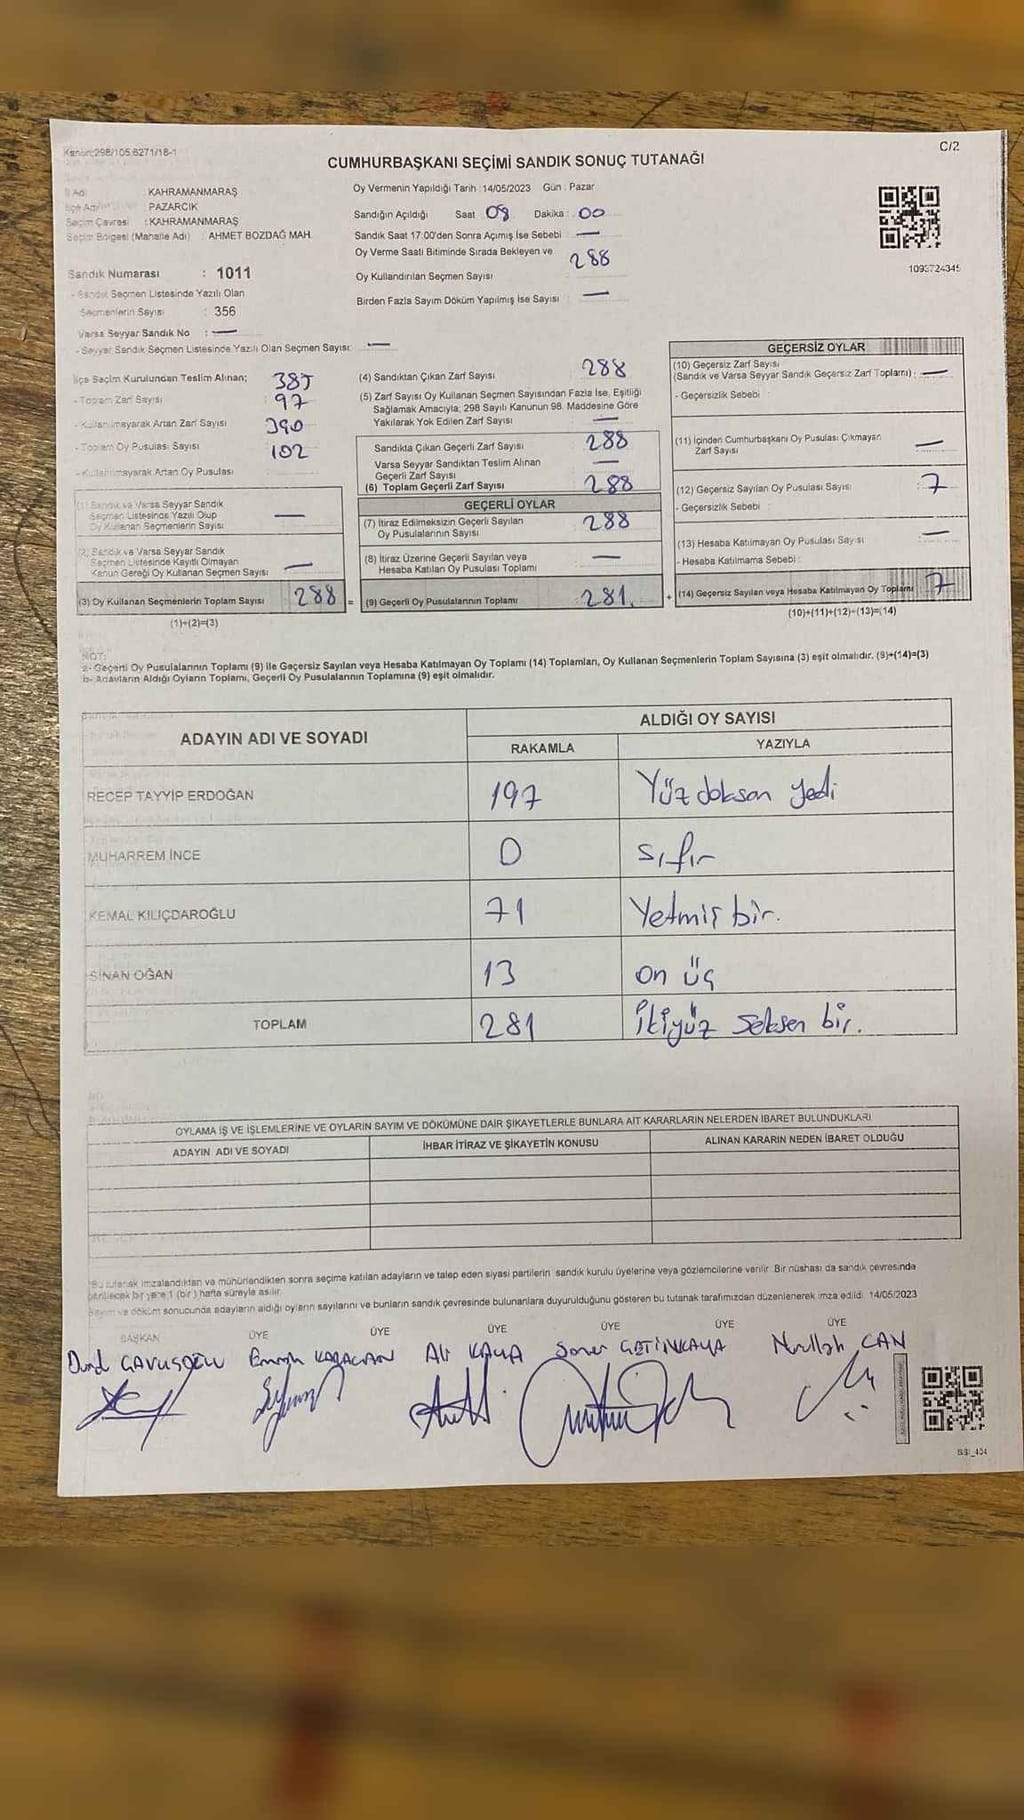 Kanun:298/105;6271/18-1
C/2
CUMHURBAŞKANI SEÇİMİ SANDIK SONUÇ TUTANAĞI
İl Adı : KAHRAMANMARAŞ
İlçe Adı : PAZARCIK
Seçim Çevresi : KAHRAMANMARAŞ
Seçim Bölgesi (Mahalle Adı) : AHMET BOZDAĞ MAH.
Sandık Numarası : 1011
- Sandık Seçmen Listesinde Yazılı Olan
Seçmenlerin Sayısı : 356
Varsa Seyyar Sandık No : —
- Seyyar Sandık Seçmen Listesinde Yazılı Olan Seçmen Sayısı: —
Oy Vermenin Yapıldığı Tarih :14/05/2023 Gün : Pazar
Sandığın Açıldığı Saat 08 Dakika : 00
Sandık Saat 17:00'den Sonra Açımış İse Sebebi —
Oy Verme Saati Bitiminde Sırada Bekleyen ve
Oy Kullandırılan Seçmen Sayısı 288
Birden Fazla Sayım Döküm Yapılmış İse Sayısı —
1093724345
İlçe Seçim Kurulundan Teslim Alınan;
- Toplam Zarf Sayısı 385
- Kullanılmayarak Artan Zarf Sayısı 97
- Toplam Oy Pusulası Sayısı 390
- Kullanılmayarak Artan Oy Pusulası 102
(1) Sandık ve Varsa Seyyar Sandık
Seçmen Listesinde Yazılı Olup
Oy Kullanan Seçmenlerin Sayısı —
(2) Sandık ve Varsa Seyyar Sandık
Seçmen Listesinde Kayıtlı Olmayan
Kanun Gereği Oy Kullanan Seçmen Sayısı —
(3) Oy Kullanan Seçmenlerin Toplam Sayısı 288 =
(1)+(2)=(3)
(4) Sandıktan Çıkan Zarf Sayısı 288
(5) Zarf Sayısı Oy Kullanan Seçmen Sayısından Fazla İse, Eşitliği
Sağlamak Amacıyla; 298 Sayılı Kanunun 98. Maddesine Göre
Yakılarak Yok Edilen Zarf Sayısı —
Sandıkta Çıkan Geçerli Zarf Sayısı 288
Varsa Seyyar Sandıktan Teslim Alınan
Geçerli Zarf Sayısı —
(6) Toplam Geçerli Zarf Sayısı 288
GEÇERLİ OYLAR
(7) İtiraz Edilmeksizin Geçerli Sayılan
Oy Pusulalarının Sayısı 288
(8) İtiraz Üzerine Geçerli Sayılan veya
Hesaba Katılan Oy Pusulası Toplamı —
(9) Geçerli Oy Pusulalarının Toplamı 281 +
GEÇERSİZ OYLAR
(10) Geçersiz Zarf Sayısı
(Sandık ve Varsa Seyyar Sandık Geçersiz Zarf Toplamı) : —
- Geçersizlik Sebebi :
(11) İçinden Cumhurbaşkanı Oy Pusulası Çıkmayan
Zarf Sayısı —
(12) Geçersiz Sayılan Oy Pusulası Sayısı 7
- Geçersizlik Sebebi :
(13) Hesaba Katılmayan Oy Pusulası Sayısı —
- Hesaba Katılmama Sebebi :
(14) Geçersiz Sayılan veya Hesaba Katılmayan Oy Toplamı 7
(10)+(11)+(12)+(13)=(14)
NOT:
a- Geçerli Oy Pusulalarının Toplamı (9) ile Geçersiz Sayılan veya Hesaba Katılmayan Oy Toplamı (14) Toplamları, Oy Kullanan Seçmenlerin Toplam Sayısına (3) eşit olmalıdır. (9)+(14)=(3)
b- Adayların Aldığı Oyların Toplamı, Geçerli Oy Pusulalarının Toplamına (9) eşit olmalıdır.
ADAYIN ADI VE SOYADI
ALDIĞI OY SAYISI
RAKAMLA YAZIYLA
RECEP TAYYİP ERDOĞAN 197 Yüz doksan yedi
MUHARREM İNCE 0 sıfır
KEMAL KILIÇDAROĞLU 71 Yetmiş bir.
SİNAN OĞAN 13 on üç
TOPLAM 281 İkiyüz seksen bir.
OYLAMA İŞ VE İŞLEMLERİNE VE OYLARIN SAYIM VE DÖKÜMÜNE DAİR ŞİKAYETLERLE BUNLARA AİT KARARLARIN NELERDEN İBARET BULUNDUKLARI
ADAYIN ADI VE SOYADI İHBAR İTİRAZ VE ŞİKAYETİN KONUSU ALINAN KARARIN NEDEN İBARET OLDUĞU
Bu tutanak imzalandıktan ve mühürlendikten sonra seçime katılan adayların ve talep eden siyasi partilerin sandık kurulu üyelerine veya gözlemcilerine verilir. Bir nüshası da sandık çevresinde
görülecek bir yere 1 (bir) hafta süreyle asılır.
Sayım ve döküm sonucunda adayların aldığı oyların sayılarını ve bunların sandık çevresinde bulunanlara duyurulduğunu gösteren bu tutanak tarafımızdan düzenlenerek imza edildi. 14/05/2023
BAŞKAN ÜYE ÜYE ÜYE ÜYE ÜYE ÜYE
KARACAN Ali KAYA Soner ÇETİNKAYA Nurullah CAN